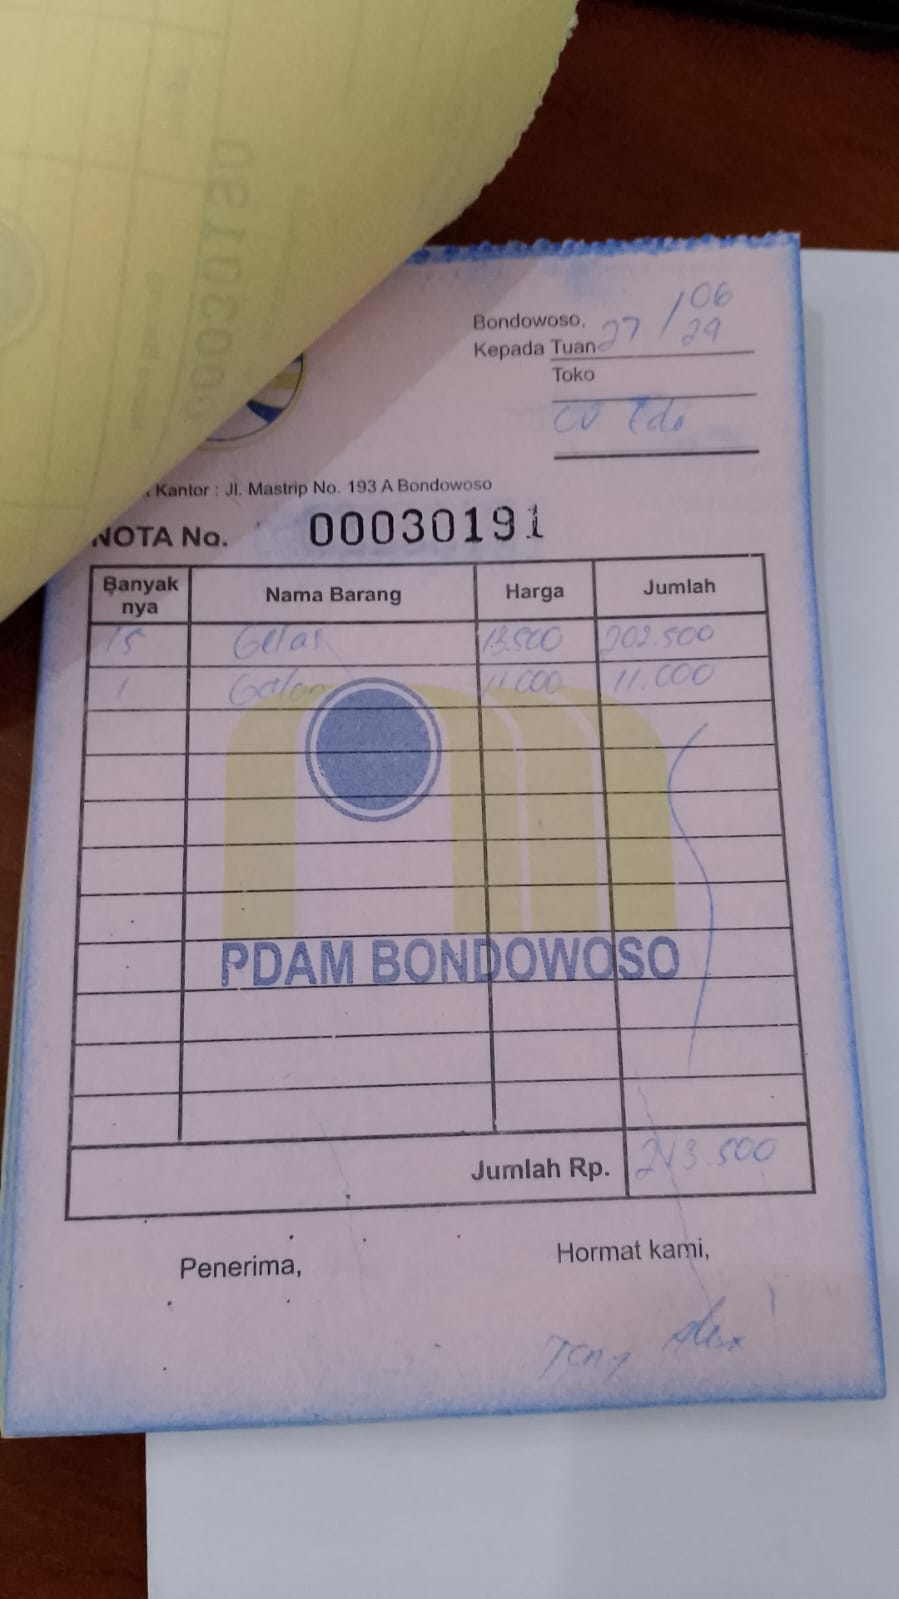 00030190
Bondowoso, 27 / 06
29
Kepada Tuan
Toko
CV Edo
Kantor : Jl. Mastrip No. 193 A Bondowoso
NOTA No. 00030191
Banyak nya Nama Barang Harga Jumlah
15 Gelas 13.500 202.500
1 Galon 11.000 11.000
PDAM BONDOWOSO
Jumlah Rp. 213.500
Penerima, Hormat kami,